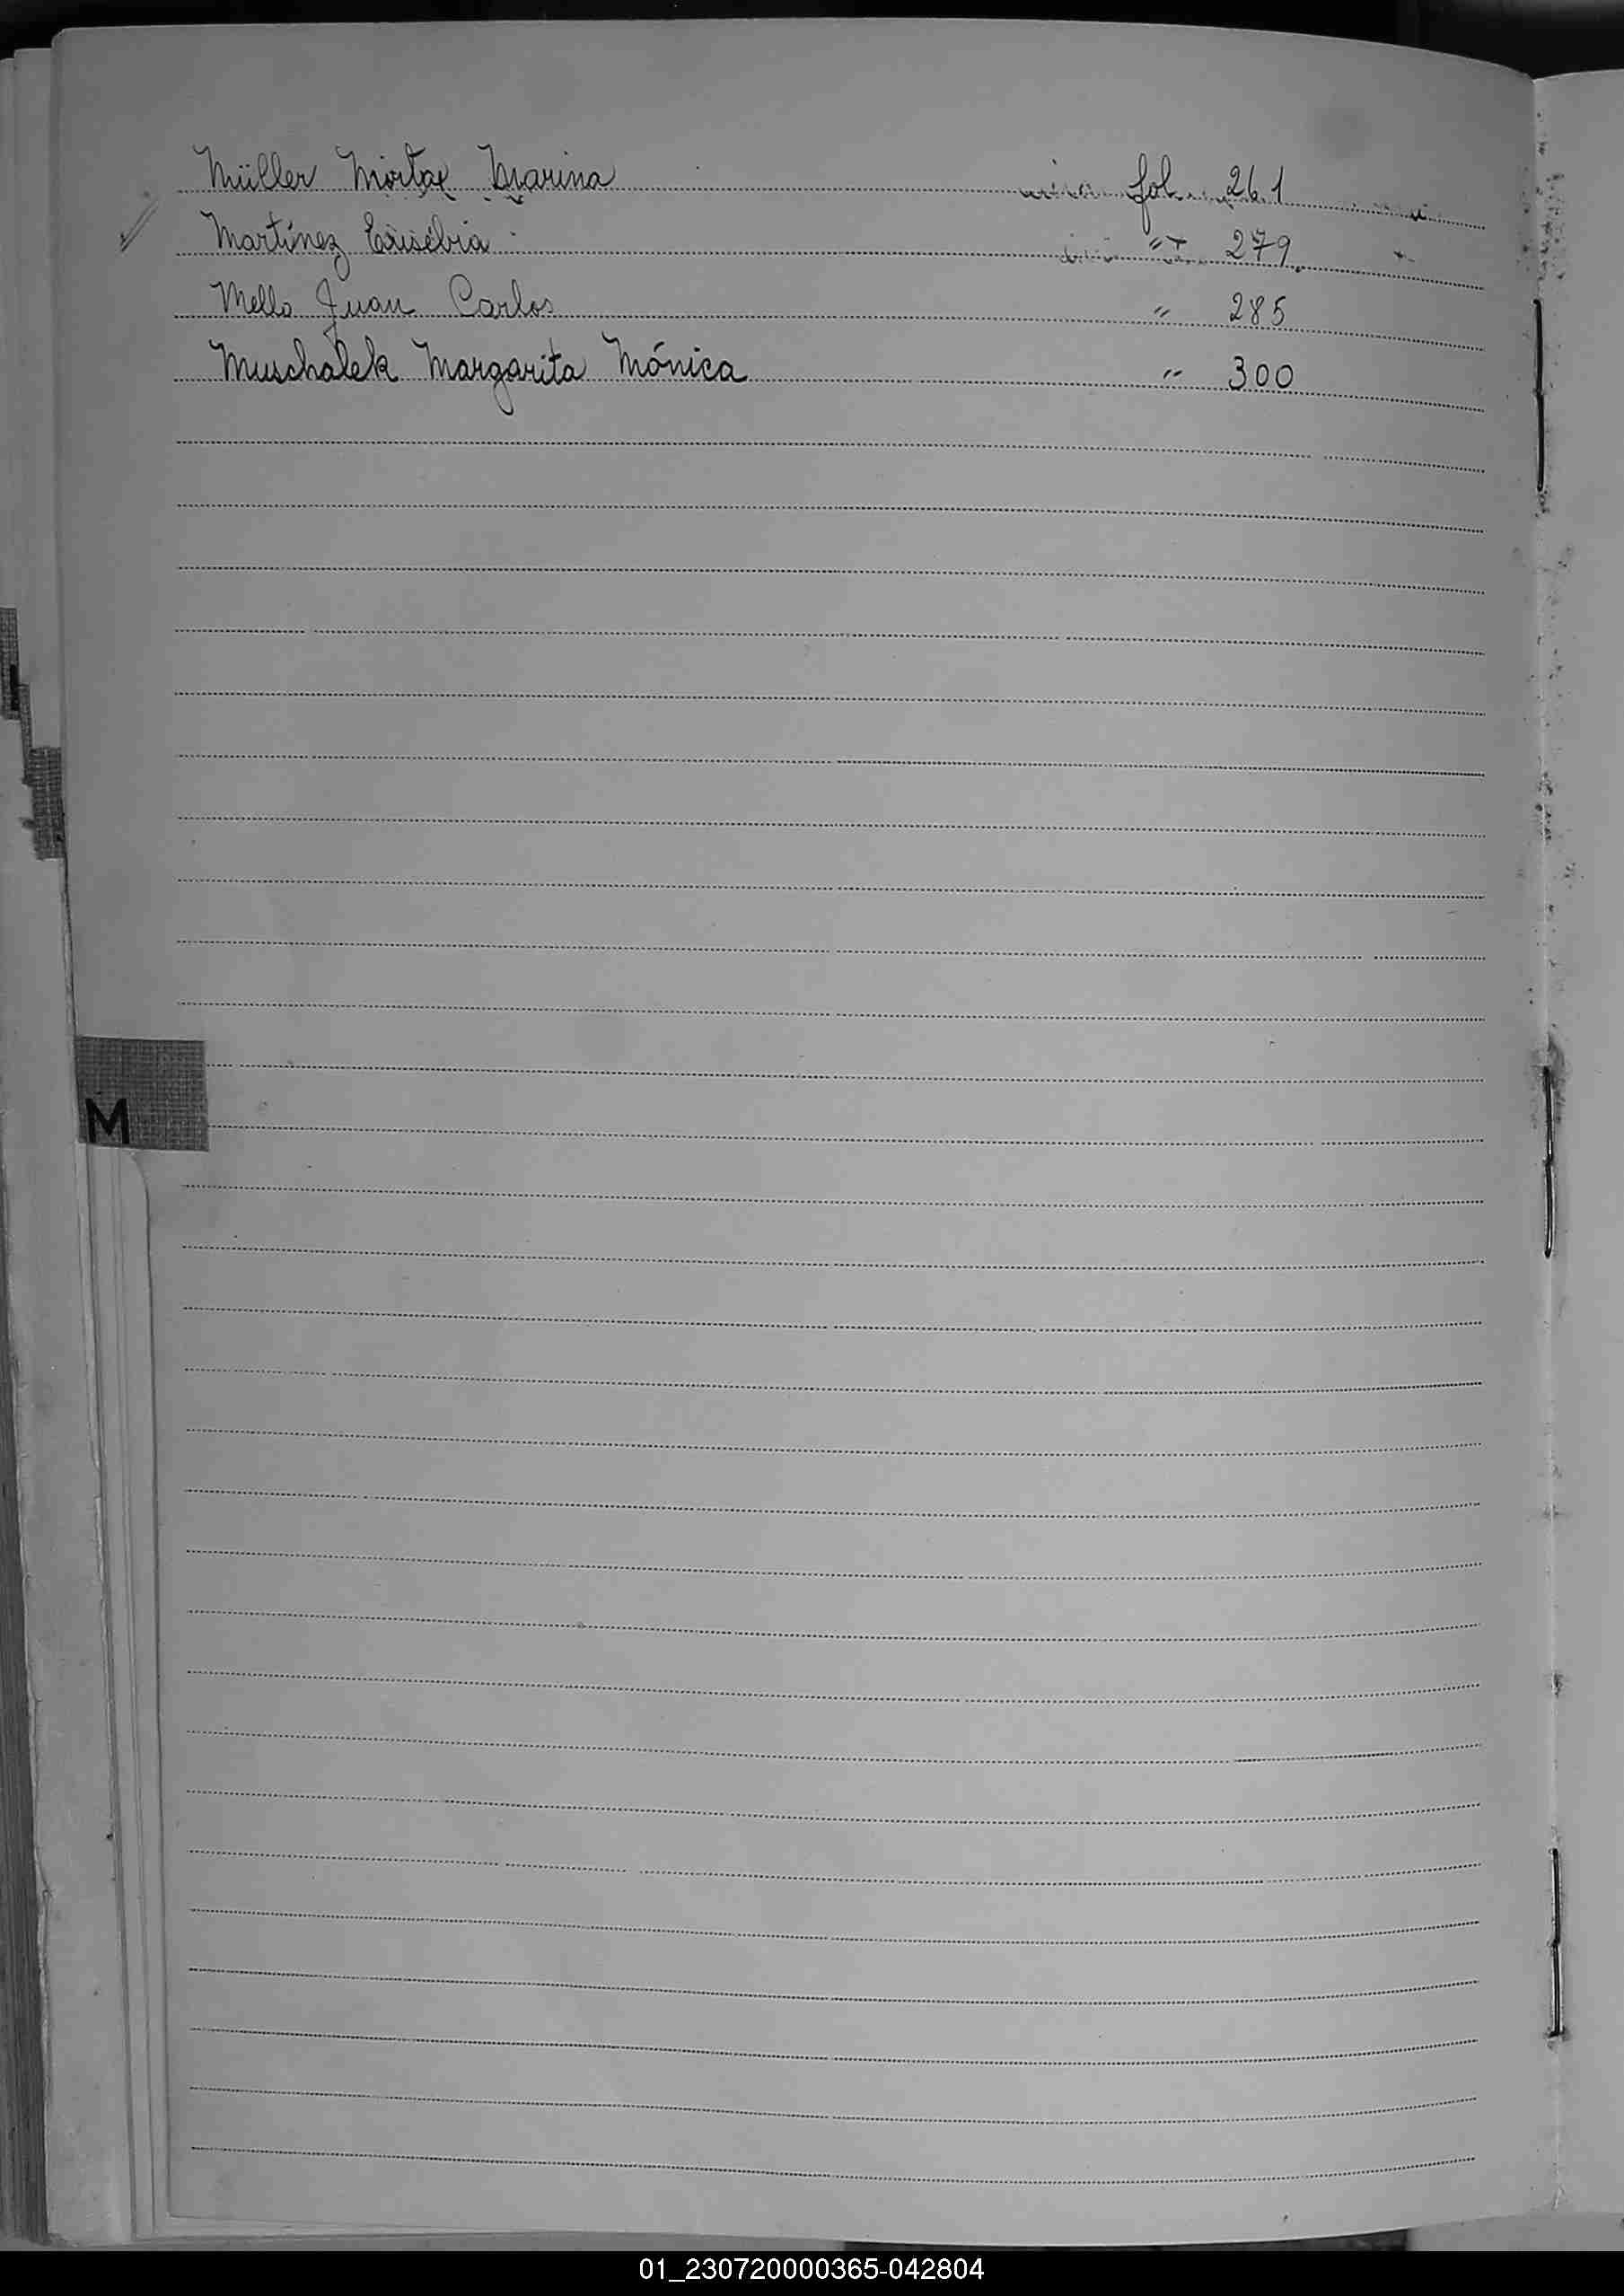 Müller Mirta Marina fol. 261
Martínez Eusebia " 279
Mello Juan Carlos " 285
Muschalek Margarita Mónica " 300
M
01_230720000365-042804